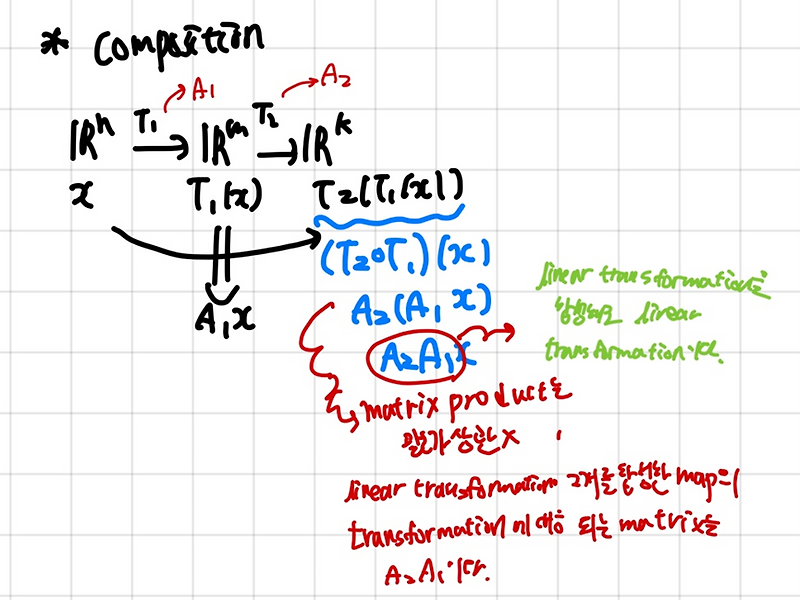 * Composition
A₁ A₂
ℝⁿ T₁ → ℝᵐ T₂ → ℝᵏ
x T₁(x) T₂(T₁(x))
(T₂∘T₁)(x)
A₁x
A₂(A₁x)
A₂A₁x
linear transformation는
합성해도 linear
transformation이다.
matrix product는
matrix transformation 2개를 합성한 map의
transformation에 대응 되는 matrix는
A₂A₁이다.